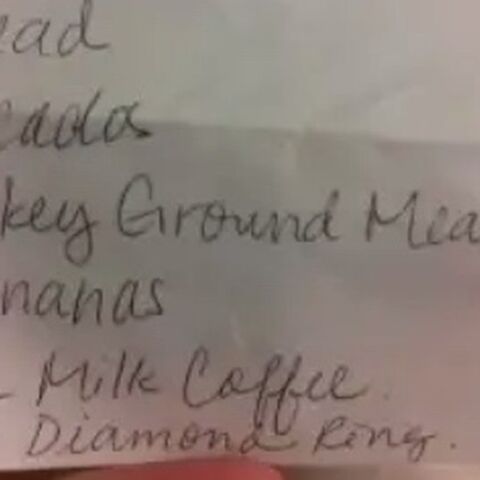 ead
cados
key Ground Mea
nanas
Milk Coffee.
Diamond Ring.